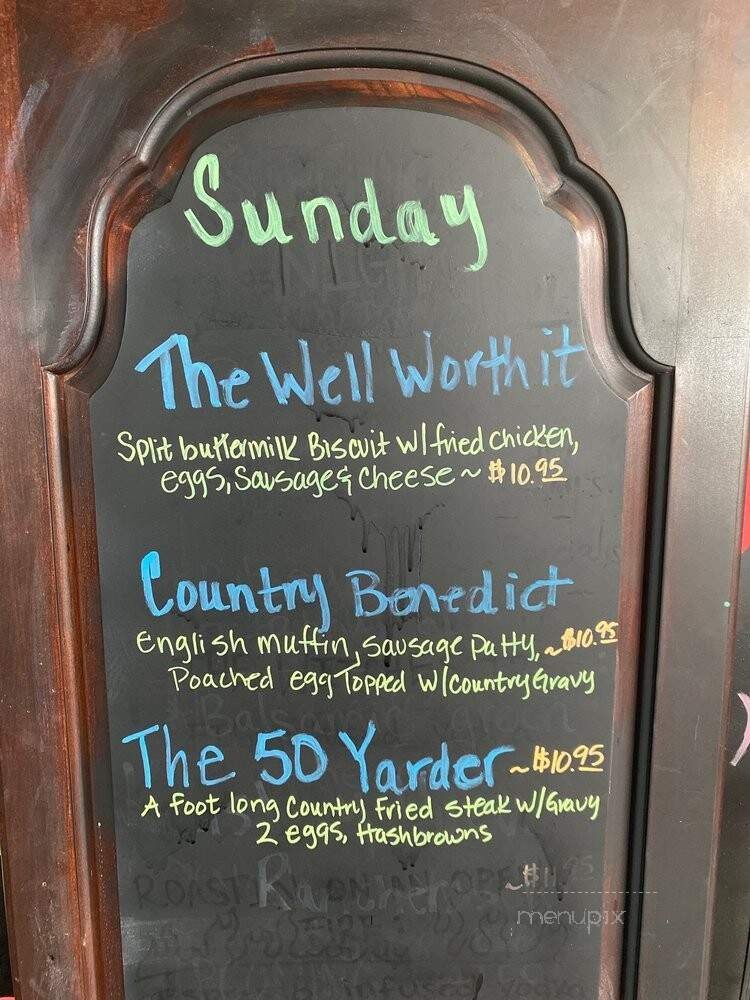 Sunday
The Well Worth it
Split buttermilk Biscuit w/fried chicken,
eggs, Sausage & Cheese ~ $10.95
Country Benedict
English muffin, Sausage Patty, ~$10.95
Poached egg Topped w/Country Gravy
The 50 Yarder ~$10.95
A foot long Country Fried Steak w/Gravy
2 eggs, Hashbrowns
menupix